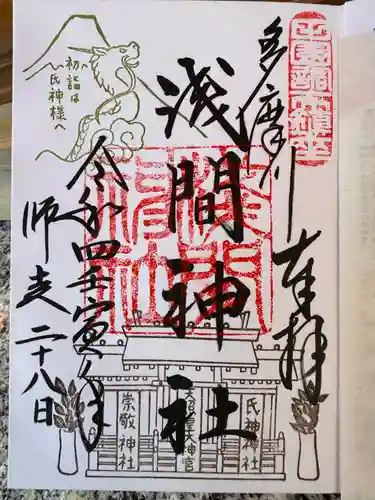 多摩川
奉拝
浅間神社
令和四壬寅年
師走二十八日
初詣は
氏神様へ
浅間神社
氏神神社
天照皇大神宮
崇敬神社